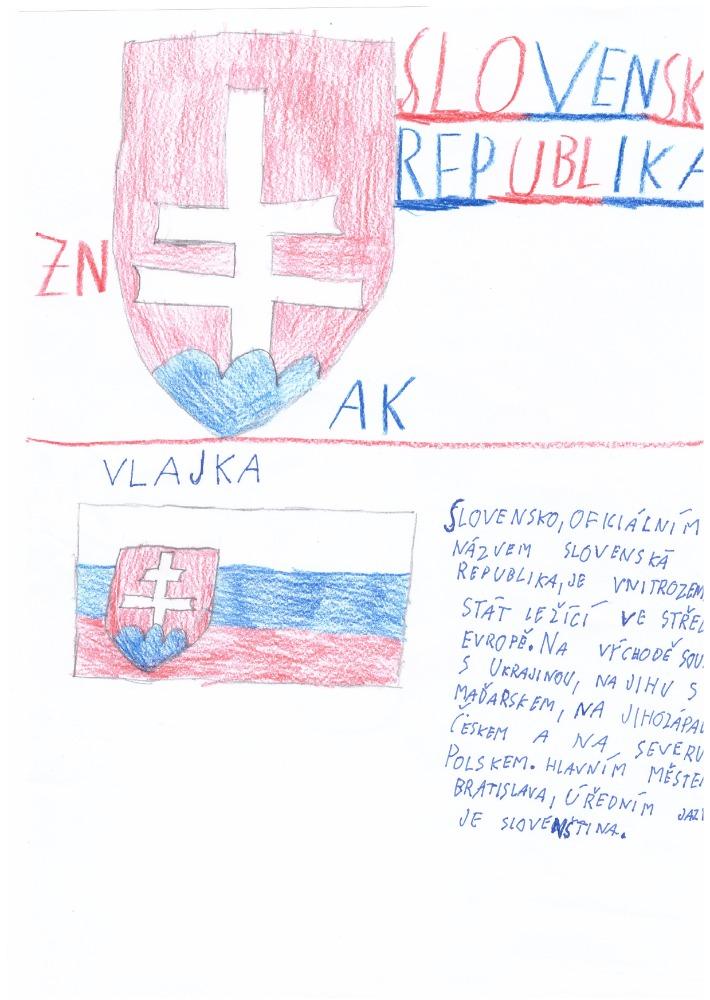 SLOVENSK
REPUBLIKA
ZN
AK
VLAJKA
SLOVENSKO, OFICIÁLNÍM
NÁZVEM SLOVENSKÁ
REPUBLIKA, JE VNITROZEM
STÁT LEŽÍCÍ VE STŘE
EVROPĚ. NA VÝCHODĚ SOU
S UKRAJINOU, NA JIHU S
MAĎARSKEM, NA JIHOZÁPA
ČESKEM A NA SEVERU
POLSKEM. HLAVNÍM MĚSTE
BRATISLAVA, ÚŘEDNÍM JAZ
JE SLOVENŠTINA.